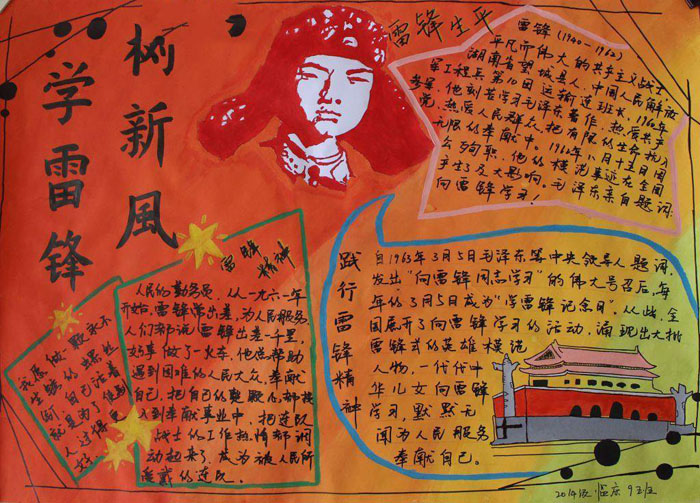 学雷锋
树新風
雷锋生平
雷锋(1940-1962)
平凡而伟大的共产主义战士
湖南省望城县人,中国人民解放
军工程兵第10团运输连班长,1960年
参军。他刻苦学习毛泽东著作,热爱共产
党,热爱人民群众,把有限的生命投入
无限的奉献中。1962年八月十五日因
公殉职,他的模范事迹在全国
产生了广大影响。毛泽东亲自题词:
向雷锋学习!
雷锋
精神
人民的勤务员,从一九六一年
开始,雷锋常出差,为人民服务,
人们都说"雷锋出差一千里,
好事做了一火车,他总帮助
遇到困难的人民大众,奉献
自己,把自己的整颗心都投
入到奉献事业中,把连队
战士的工作热情都调
动起来了,成为被人民所
爱戴的连队。
我愿做一颗永不
生锈的螺丝
自己活着
就是为了使别
人过得更
好
践行雷锋精神
自1963年3月5日毛泽东等中央领导人题词,
发出"向雷锋同志学习"的伟大号召后,每
年的3月5日成为"学雷锋记念日"。从此,全
国展开了向雷锋学习的活动,涌现出大批
雷锋式的英雄模范
人物,一代代中
华儿女向雷锋
学习,默默无
闻为人民服务
奉献自己。
2014级 临床 9班